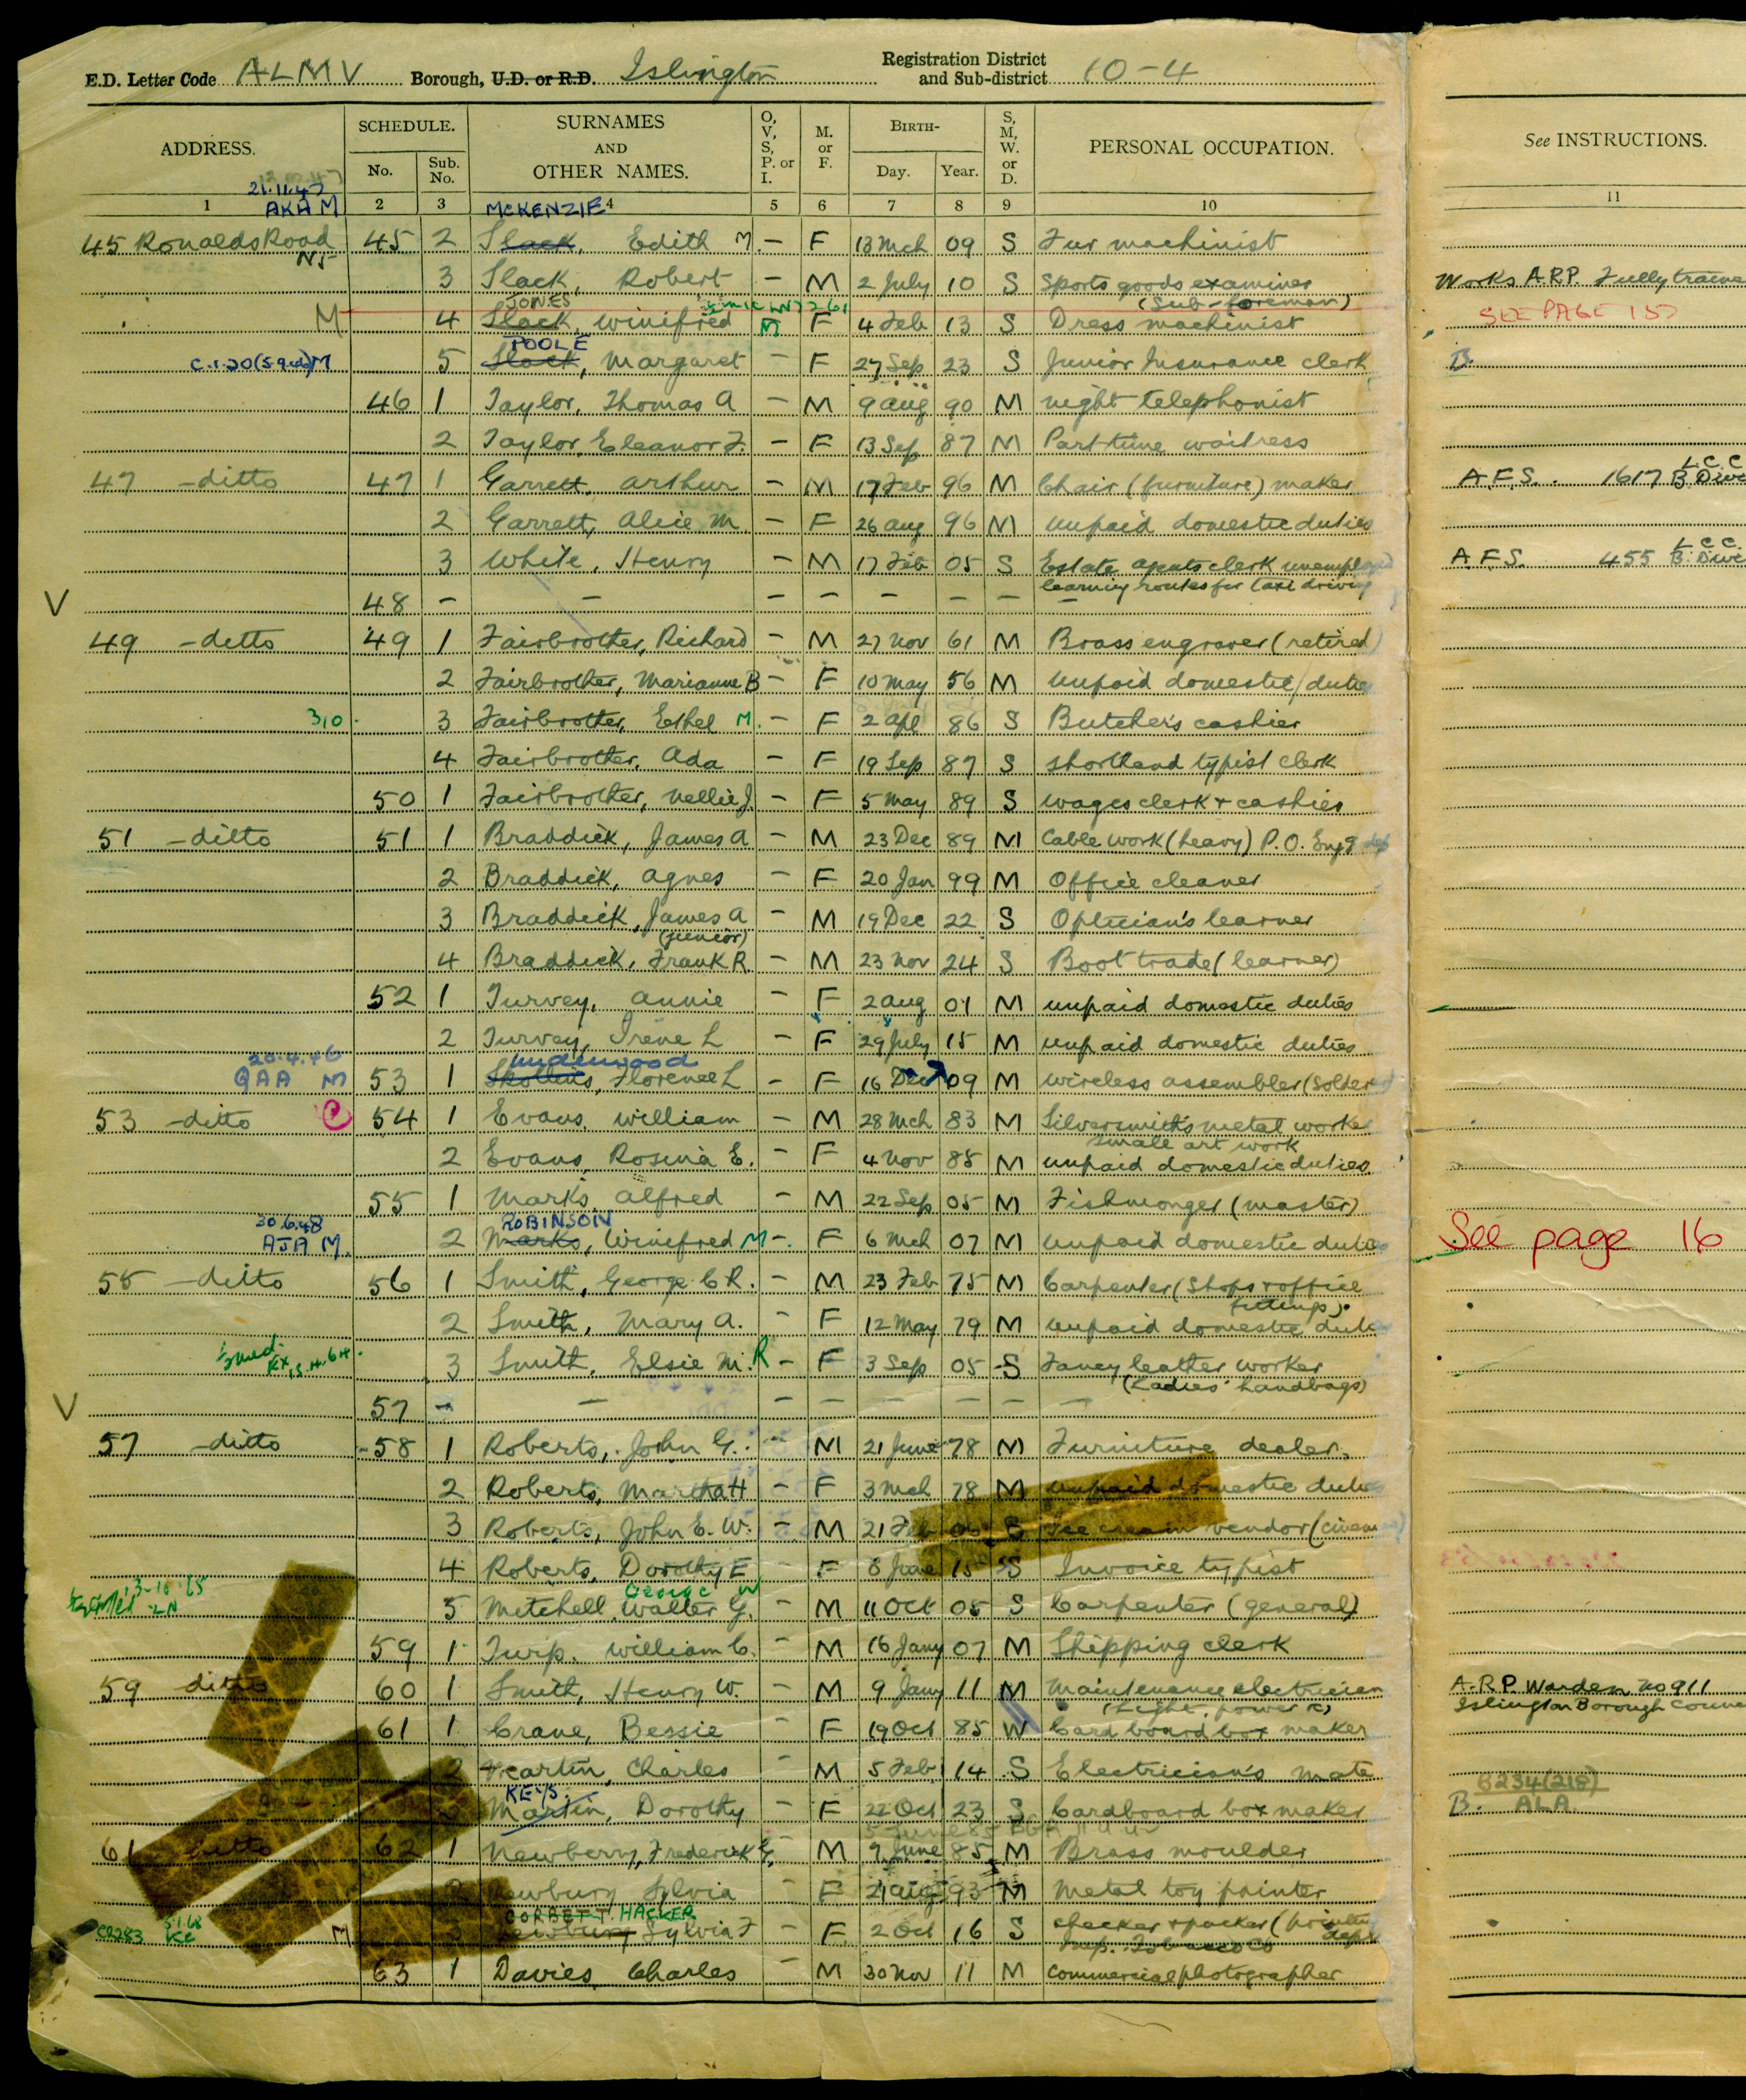 E.D. Letter Code ALMV Borough, U.D. or R.D. Islington Registration District and Sub-district 10-4
ADDRESS. SCHEDULE. No. Sub. No. SURNAMES AND OTHER NAMES. O, V, S, P. or I. M. or F. BIRTH- Day. Year. S, M, W. or D. PERSONAL OCCUPATION. See INSTRUCTIONS.
21.11.47
1 AKA M 2 3 McKENZIE 4 5 6 7 8 9 10 11
45 Ronalds Road N5 45 2 Slack, Edith M. - F 13 Mch 09 S Fur machinist
3 Slack, Robert - M 2 July 10 S Sports goods examiner (Sub-foreman) Works A.R.P. Fully traine
JONES
M 4 Slack, Winifred M F 4 Feb 13 S Dress machinist SEE PAGE 157
POOLE
C.R.20 M 5 Slack, Margaret - F 27 Sep 23 S Junior Insurance clerk B.
46 1 Taylor, Thomas A - M 9 Aug 90 M night telephonist
2 Taylor, Eleanor F. - F 13 Sep 87 M Part-time waitress
47 -ditto 47 1 Garrett, Arthur - M 17 Feb 96 M Chair (furniture) maker A.F.S. 1617 L.C.C. B. Divi
2 Garrett, Alice M - F 26 Aug 96 M unpaid domestic duties
3 White, Henry - M 17 Feb 05 S Estate agents clerk unemployed A.F.S. 455 L.C.C. B. Divi
learning routes for taxi driving
V 48 - - - - - - - -
49 -ditto 49 1 Fairbrother, Richard - M 27 Nov 61 M Brass engraver (retired)
2 Fairbrother, Marianne B - F 10 May 56 M unpaid domestic duties
310. 3 Fairbrother, Ethel M. - F 2 Apl 86 S Butcher's cashier
4 Fairbrother, Ada - F 19 Sep 87 S shorthand typist clerk
50 1 Fairbrother, Nellie J. - F 5 May 89 S wages clerk + cashier
51 -ditto 51 1 Braddick, James A - M 23 Dec 89 M Cable work (heavy) P.O. Eng'g dep
2 Braddick, Agnes - F 20 Jan 99 M Office cleaner
3 Braddick, James A (junior) - M 19 Dec 22 S Optician's learner
4 Braddick, Frank R. - M 23 Nov 24 S Boot trade (learner)
52 1 Turvey, Annie - F 2 Aug 01 M unpaid domestic duties
2 Turvey, Irene L - F 29 July 15 M unpaid domestic duties
20.4.46 Underwood
QAA M 53 1 Florence L - F 16 Dec 09 M wireless assembler (solder
53 -ditto C 54 1 Evans, William - M 28 Mch 83 M Silversmith's metal worker
small art work
2 Evans, Rosina E. - F 4 Nov 85 M unpaid domestic duties
55 1 Marks, Alfred - M 22 Sep 05 M Fishmonger (master)
30.6.48 ROBINSON
AJA M. 2 Marks, Winifred M - F 6 Mch 07 M unpaid domestic duties See page 16
55 -ditto 56 1 Smith, George C R. - M 23 Feb 75 M Carpenter (Shops + office
fittings).
2 Smith, Mary A. - F 12 May 79 M unpaid domestic duti
3 Smith, Elsie M. R - F 3 Sep 05 S Fancy leather worker
(Ladies' handbags)
V 57 - - - - - - - -
57 -ditto 58 1 Roberts, John G. - M 21 June 78 M Furniture dealer
2 Roberts, Martha H - F 3 Mch 78 M unpaid domestic duties
3 Roberts, John E. W. - M 21 Feb 06 S Ice cream vendor (cinema)
4 Roberts, Dorothy E - F 8 June 15 S Invoice typist
13-10-65 George W
LN 5 Mitchell, Walter G. - M 11 Oct 05 S Carpenter (general)
59 1 Turp, William C. - M 16 Jany 07 M Shipping clerk
59 ditto 60 1 Smith, Henry W. - M 9 Jany 11 M Maintenance electrician A.R.P. Warden No 911
(Light, power &) Islington Borough Counc
61 1 Crane, Bessie - F 19 Oct 85 W Cardboard box maker
2 Martin, Charles - M 5 Feb 14 S Electrician's mate
KEYS. B234(218)
3 Martin, Dorothy - F 22 Oct 23 S Cardboard box maker B. ALA.
61 ditto 62 1 Newberry, Frederick G. - M 9 June 85 M Brass moulder
2 Newbury, Sylvia - F 21 Aug 93 M Metal toy painter
CORBETT HACKER
CR283 5.1.68 M 3 Newbury, Sylvia F - F 2 Oct 16 S checker + packer (printing dept
Imp. Tobacco Co
63 1 Davies, Charles - M 30 Nov 11 M commercial photographer